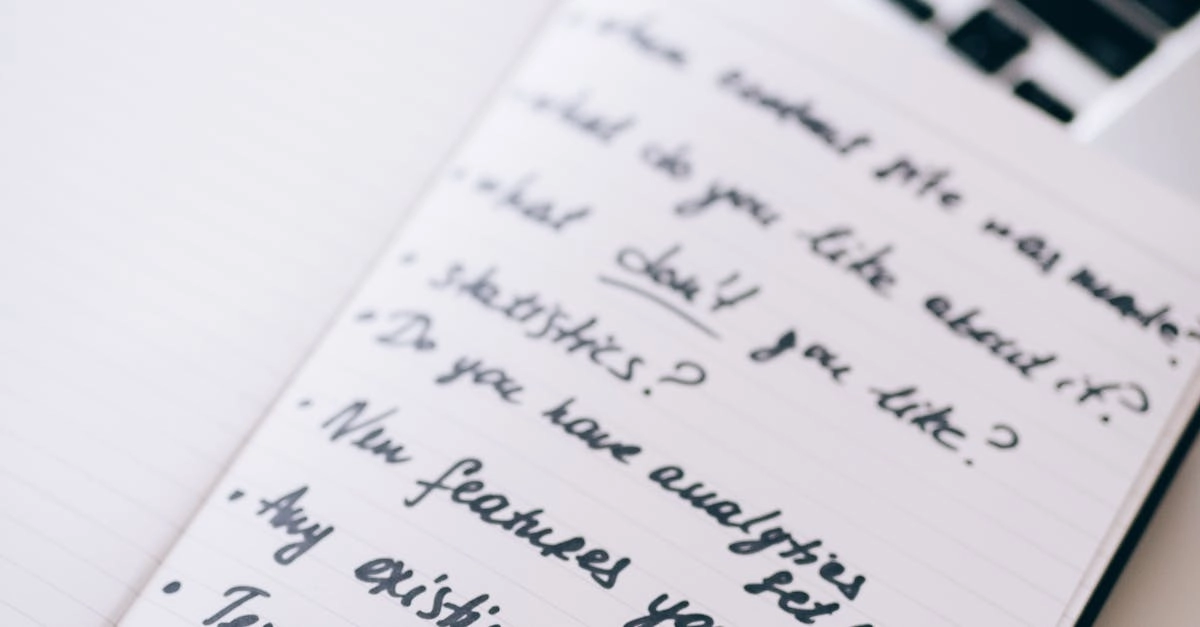 • when site was made?
• what do you like about it?
• what don't you like?
• statistics?
• Do you have analytics
set
• New features yo
• Any existi
• Te